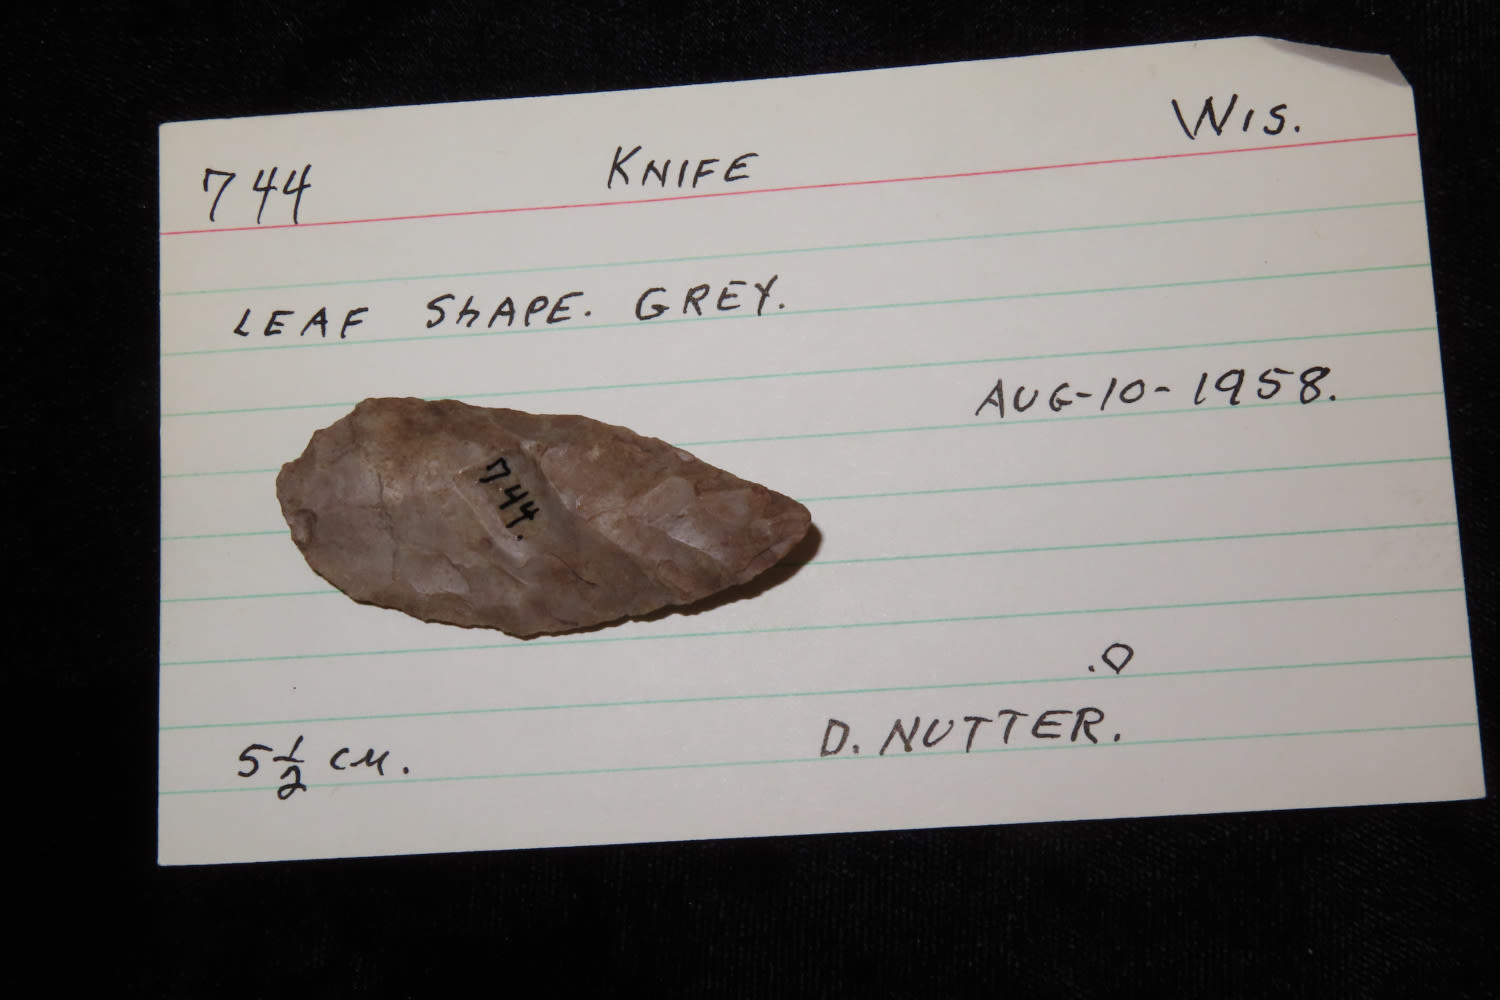 744 KNIFE WIS.
LEAF SHAPE. GREY.
AUG-10-1958.
744.
5 1/2 CM.
D. NUTTER.